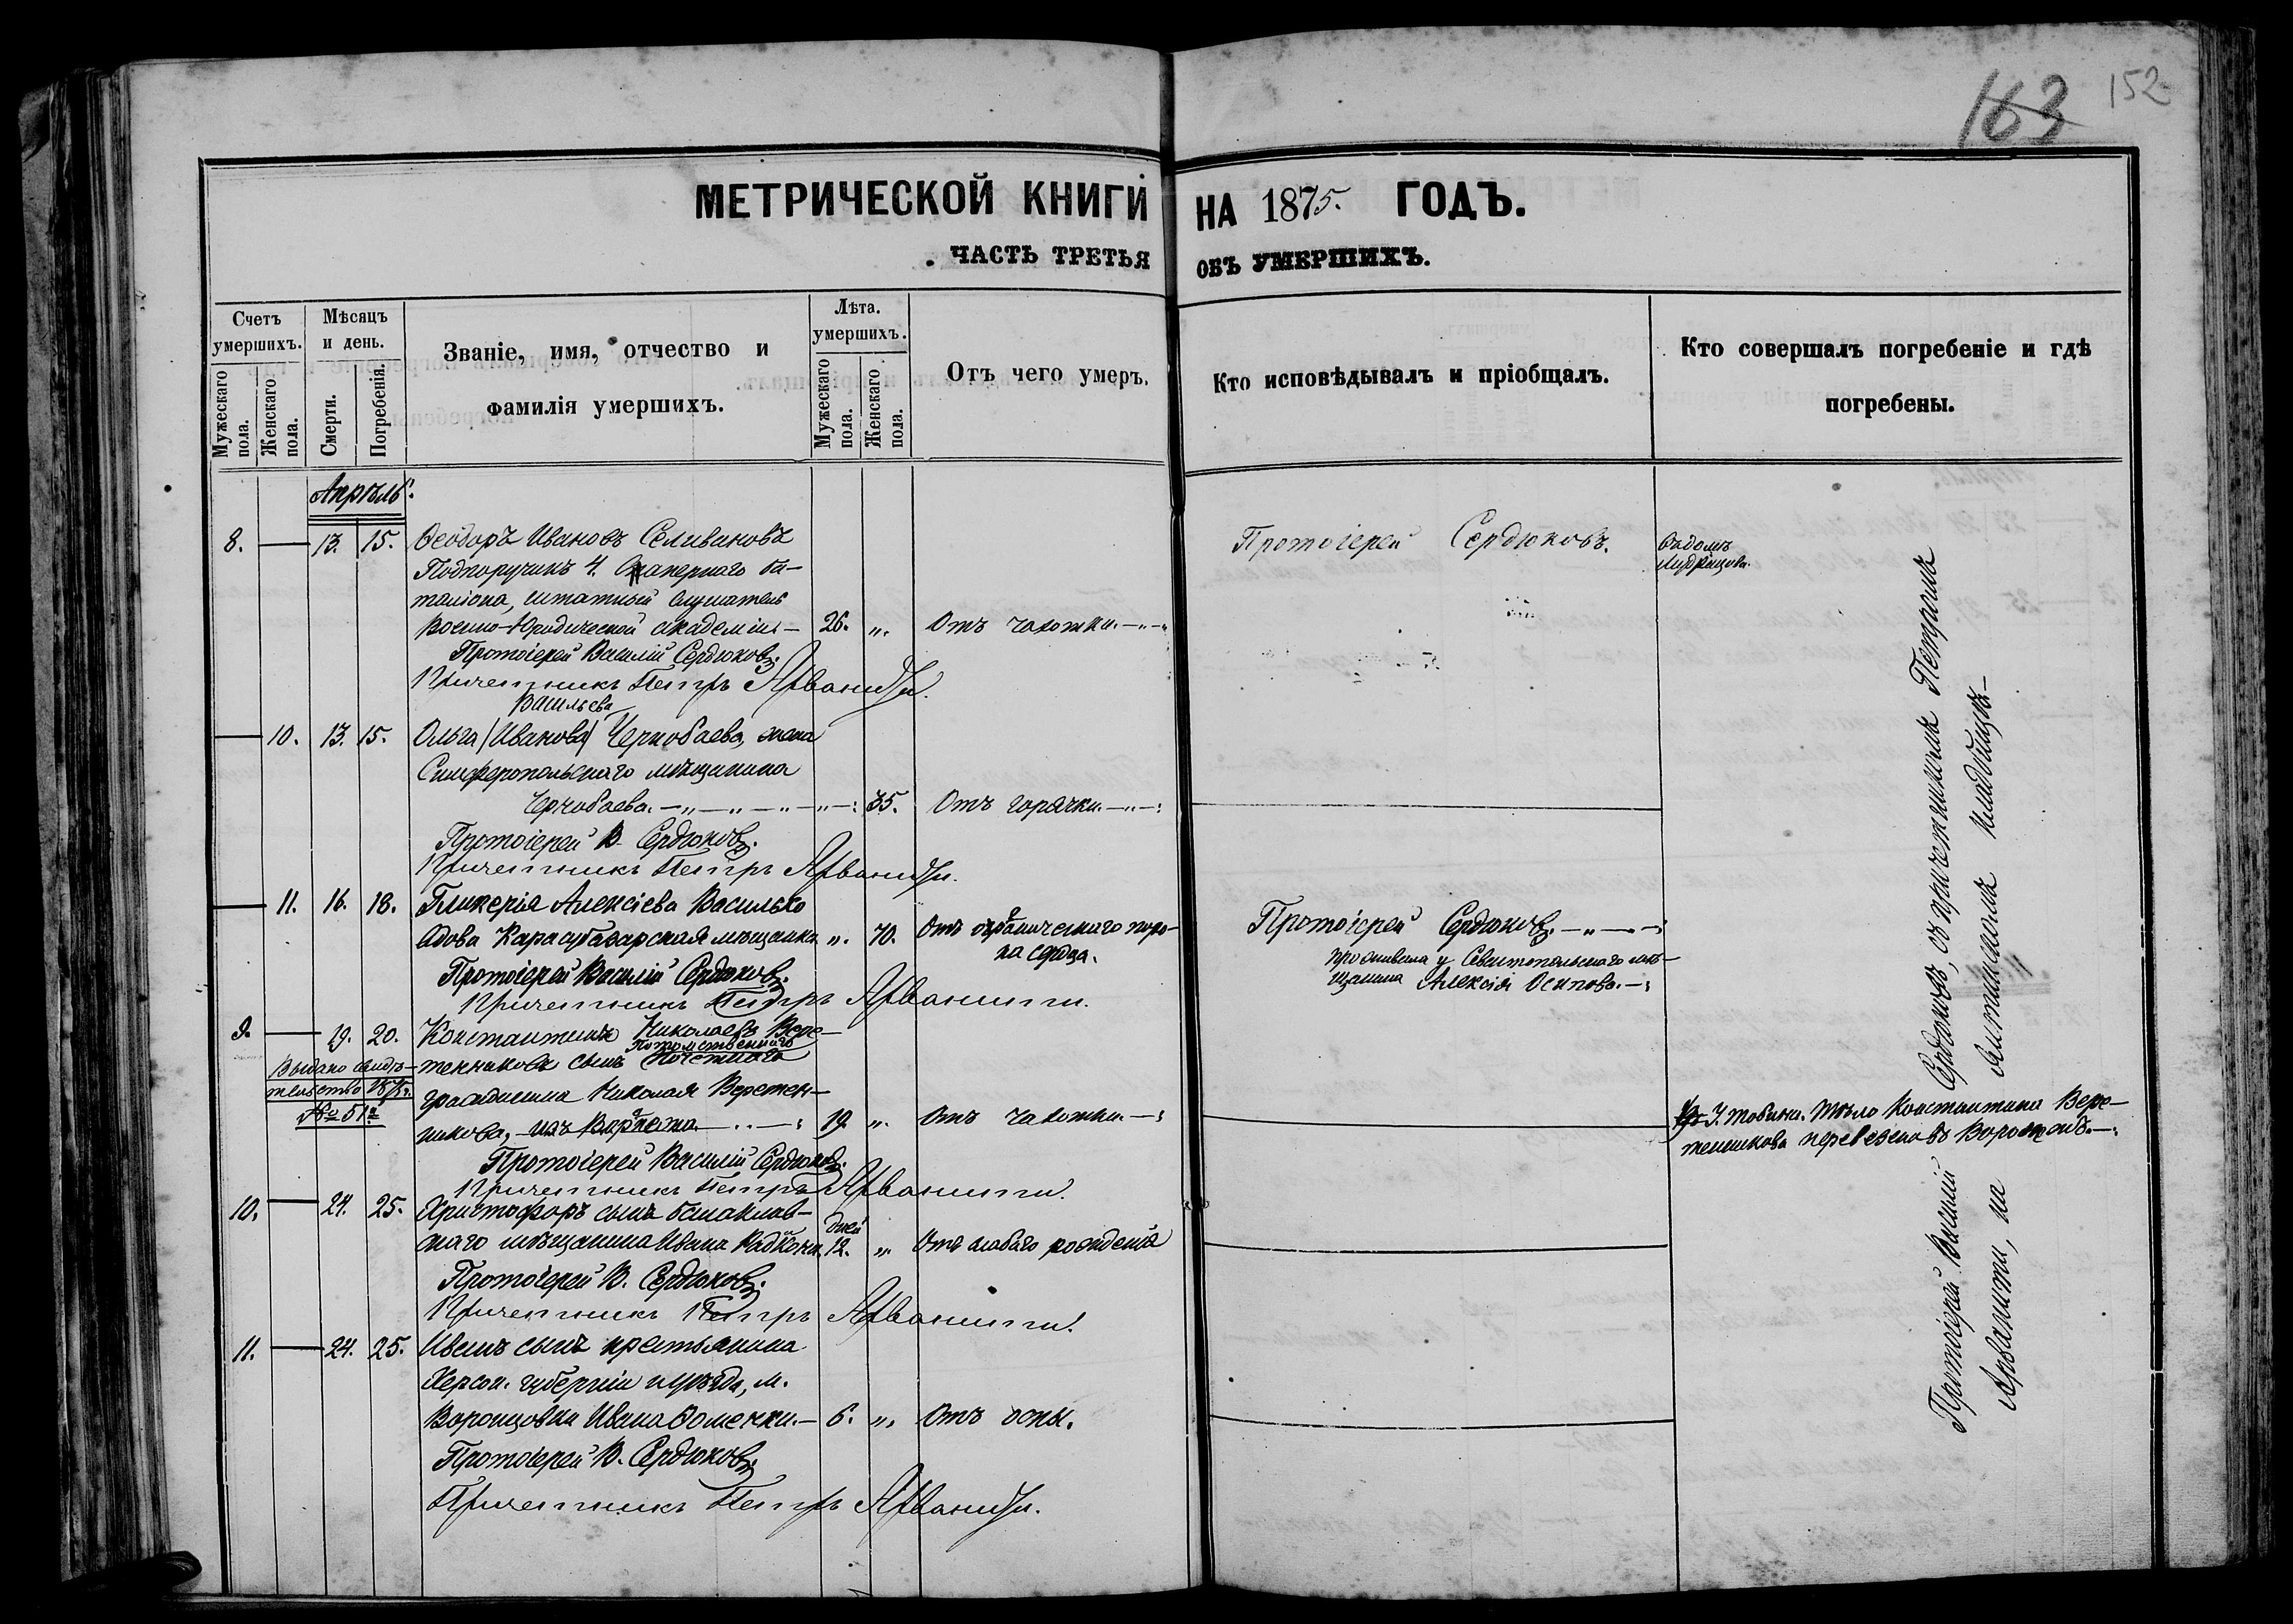 163 152
МЕТРИЧЕСКОЙ КНИГИ НА 1875. ГОДЪ.
ЧАСТЬ ТРЕТЬЯ ОБЪ УМЕРШИХЪ.
Счетъ умершихъ.
Мужескаго пола.
Женскаго пола.
Мѣсяцъ и день.
Смерти.
Погребенія.
Званіе, имя, отчество и
фамилія умершихъ.
Лѣта.
умершихъ.
Мужескаго пола.
Женскаго пола.
Отъ чего умеръ.
Кто исповѣдывалъ и пріобщалъ.
Кто совершалъ погребеніе и гдѣ
погребены.
Апрѣль.
8. — 13. 15. Ѳеодоръ Ивановъ Селивановъ
Подпоручикъ 4. Сапернаго ба-
таліона, штатный слушатель
Военно-Юридической Академіи — 26. „ Отъ чахотки. —„—
Протоіерей Сердюковъ.
Протоіерей Василій Сердюковъ.
Причетникъ Петръ Арваниди.
Васильева
— 10. 13. 15. Ольга (Иванова) Чернобаева, жена
Симферопольскаго мѣщанина
Чернобаева. —„—„—„—„—: 35. Отъ горячки. —„—:
Протоіерей В. Сердюковъ.
Причетникъ Петръ Арваниди.
— 11. 16. 18. Гликерія Алексіева Василько
вдова Карасубазарская мѣщанка „. 70. Отъ органическаго поро-
ка сердца.
Протоіерей Сердюковъ. —„—:
проживала у Севастопольскаго мѣ-
щанина Алексія Осипова. —:
Протоіерей Василій Сердюковъ.
Причетникъ Петръ Арванити.
9. — 19. 20. Константинъ Николаевъ Вере-
потомственнаго
тенниковъ сынъ Почетнаго
гражданина Николая Веретен-
никова, изъ — 19. „ Отъ чахотки. —:
Выдано свидѣ-
тельство 1875 г.
№ 51й
Тѣло Константина Вере-
тенникова перевезено въ Воронежъ. —:
Протоіерей Василій Сердюковъ.
Причетникъ Петръ Арванити.
10. — 24. 25. Христофоръ сынъ Балаклав-
дней
скаго мѣщанина Ивана 12. „ Отъ слабаго рожденія
Протоіерей В. Сердюковъ.
Причетникъ Петръ Арванити.
11. — 24. 25. Иванъ сынъ крестьянина
Херсон. губерніи и уѣзда, м.
Воронцовки Ивана Ѳоменки. — 6. „. Отъ оспы.
Протоіерей В. Сердюковъ.
Причетникъ Петръ Арваниди.
Протоіерей Василій Сердюковъ, съ причетникомъ Петромъ
Арванити, на кладбищѣ —